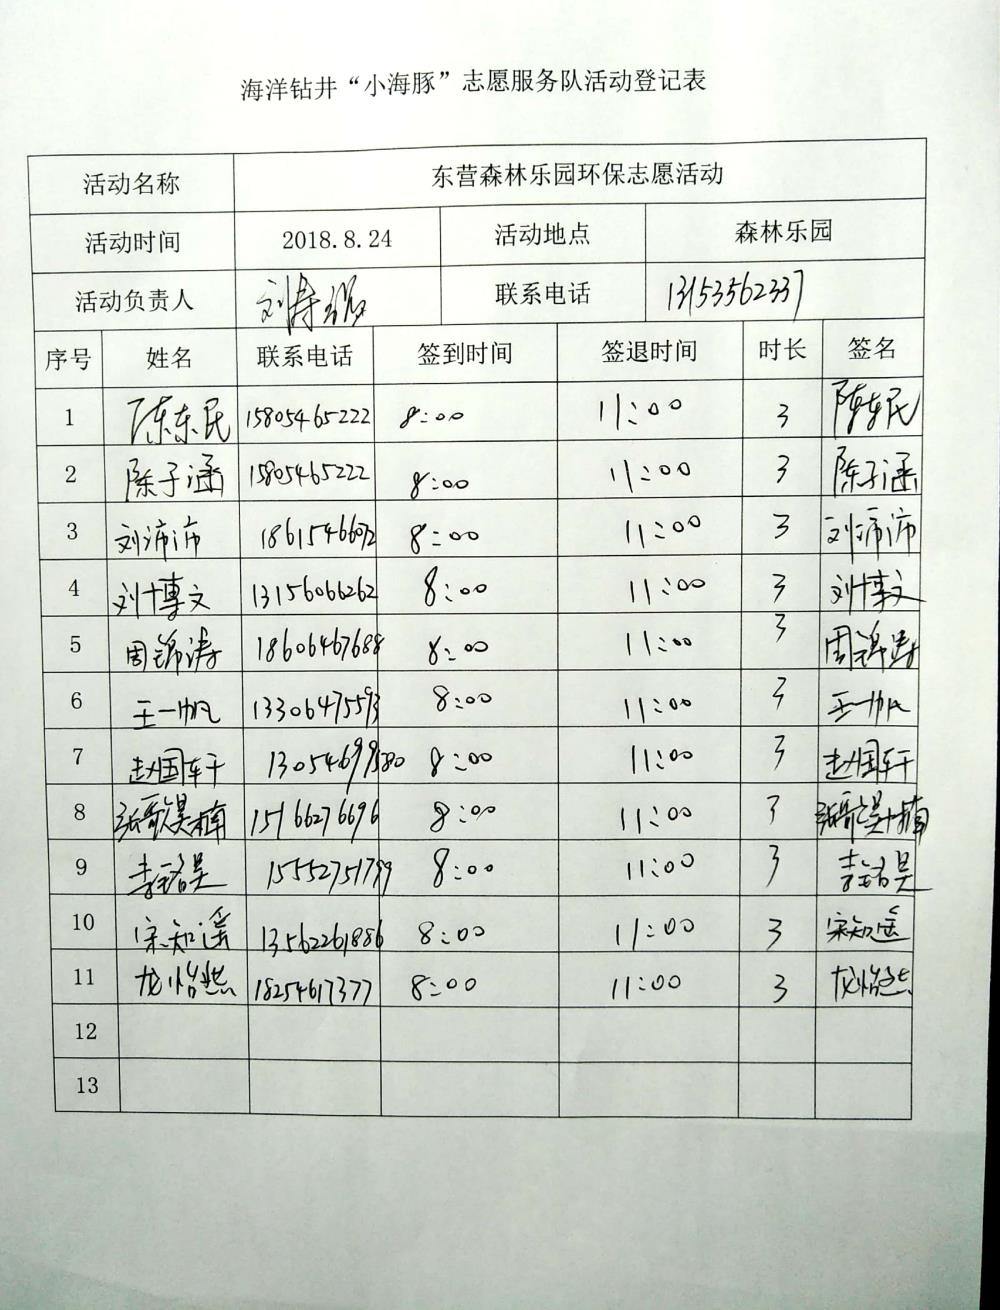 海洋钻井“小海豚”志愿服务队活动登记表
活动名称 东营森林乐园环保志愿活动
活动时间 2018.8.24 活动地点 森林乐园
活动负责人 联系电话 13153562337
序号 姓名 联系电话 签到时间 签退时间 时长 签名
1 陈东民 15805465222 8:00 11:00 3 陈东民
2 陈子涵 15805465222 8:00 11:00 3 陈子涵
3 刘沛沛 18615466072 8:00 11:00 3 刘沛沛
4 刘博文 13156066262 8:00 11:00 3 刘博文
5 周锦涛 18606467688 8:00 11:00 3 周锦涛
6 王一帆 13306475593 8:00 11:00 3 王一帆
7 赵国轩 13054699580 8:00 11:00 3 赵国轩
8 张歌昊楠 15166276696 8:00 11:00 3 张歌昊楠
9 李铭昊 15552751799 8:00 11:00 3 李铭昊
10 宋知遥 13562261886 8:00 11:00 3 宋知遥
11 龙怡然 18254617377 8:00 11:00 3 龙怡然
12
13